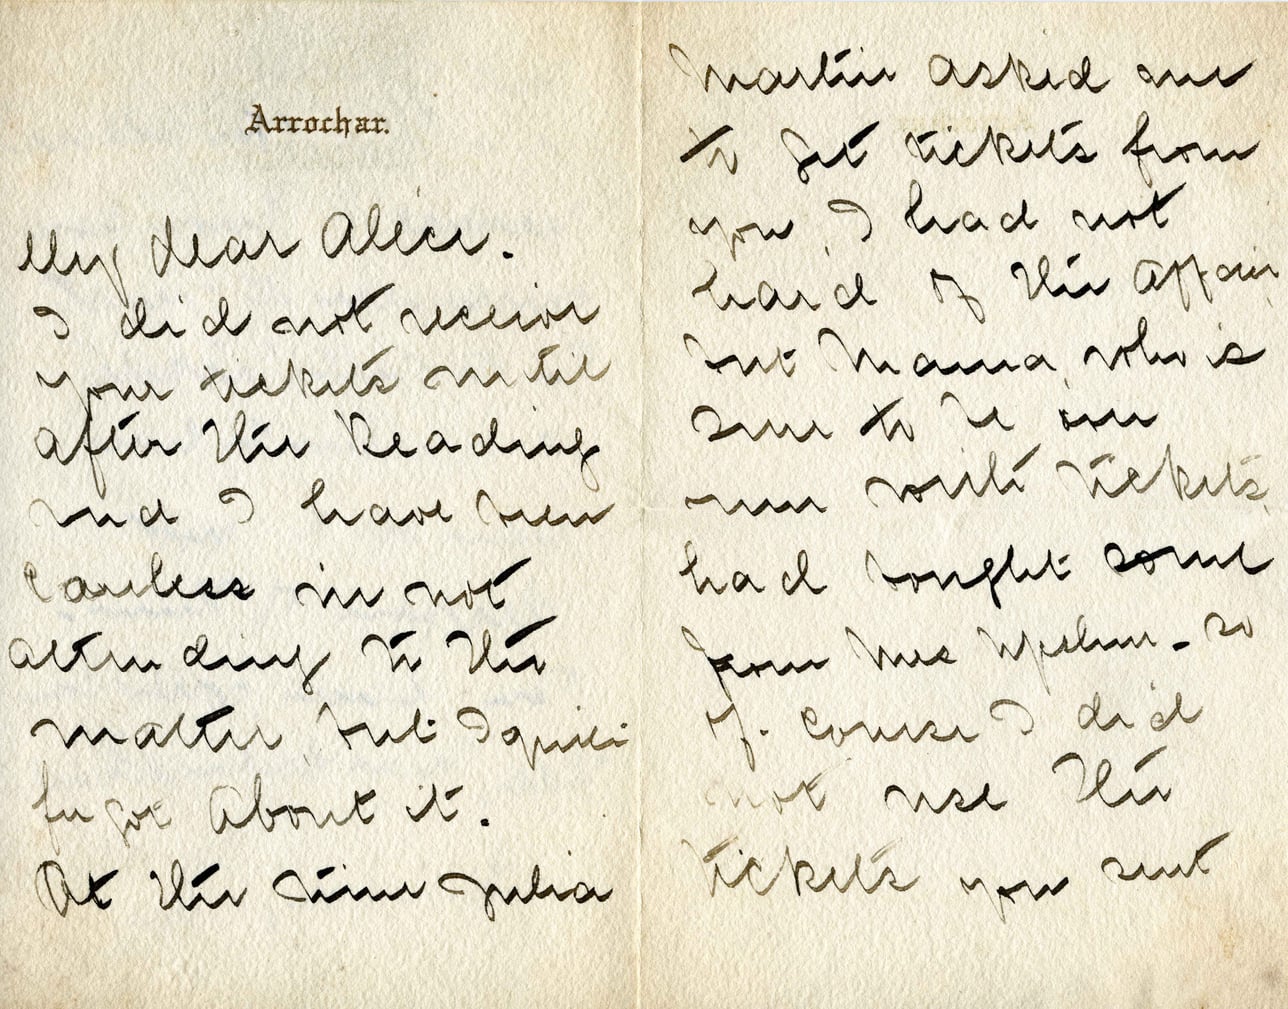 Arrochar.
My dear Alice.
I did not receive
your tickets until
after the Reading
and I have been
careless in not
attending to the
matter, but I quite
forgot about it.
At the time Julia
Martin asked me
to get tickets from
you, I had not
heard of the Affair,
but Mama, who is
sure to be our
run with tickets,
had bought some
from Mrs Upshur - so
of. course I did
not use the
tickets you sent